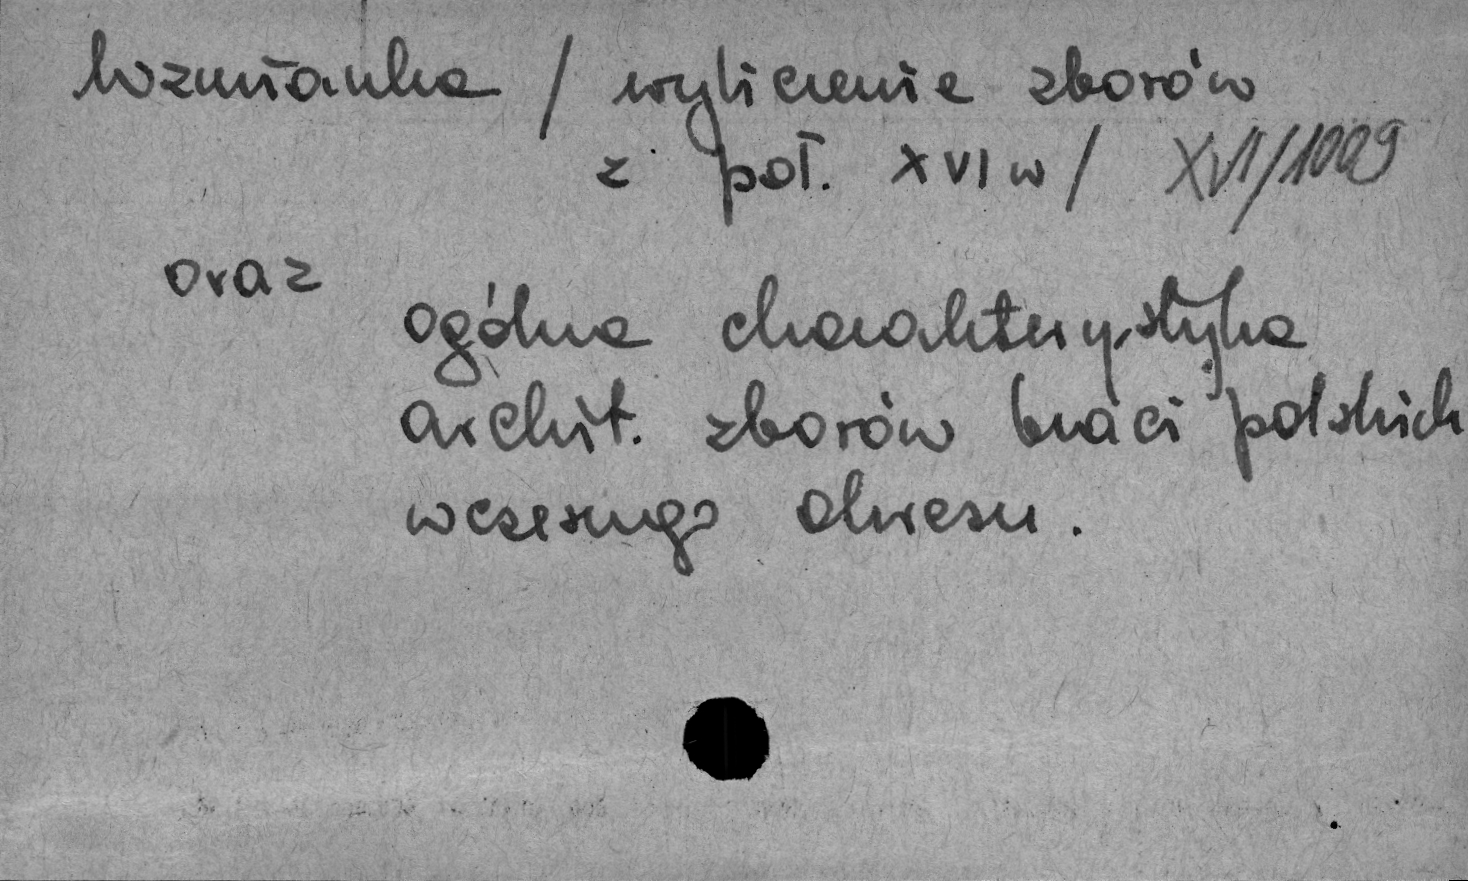 Wzmianka / wyliczenie zborów
z poł. XVI w / XVI/1009
oraz
ogólna charakterystyka
archit. zborów braci polskich
wczesnego okresu.